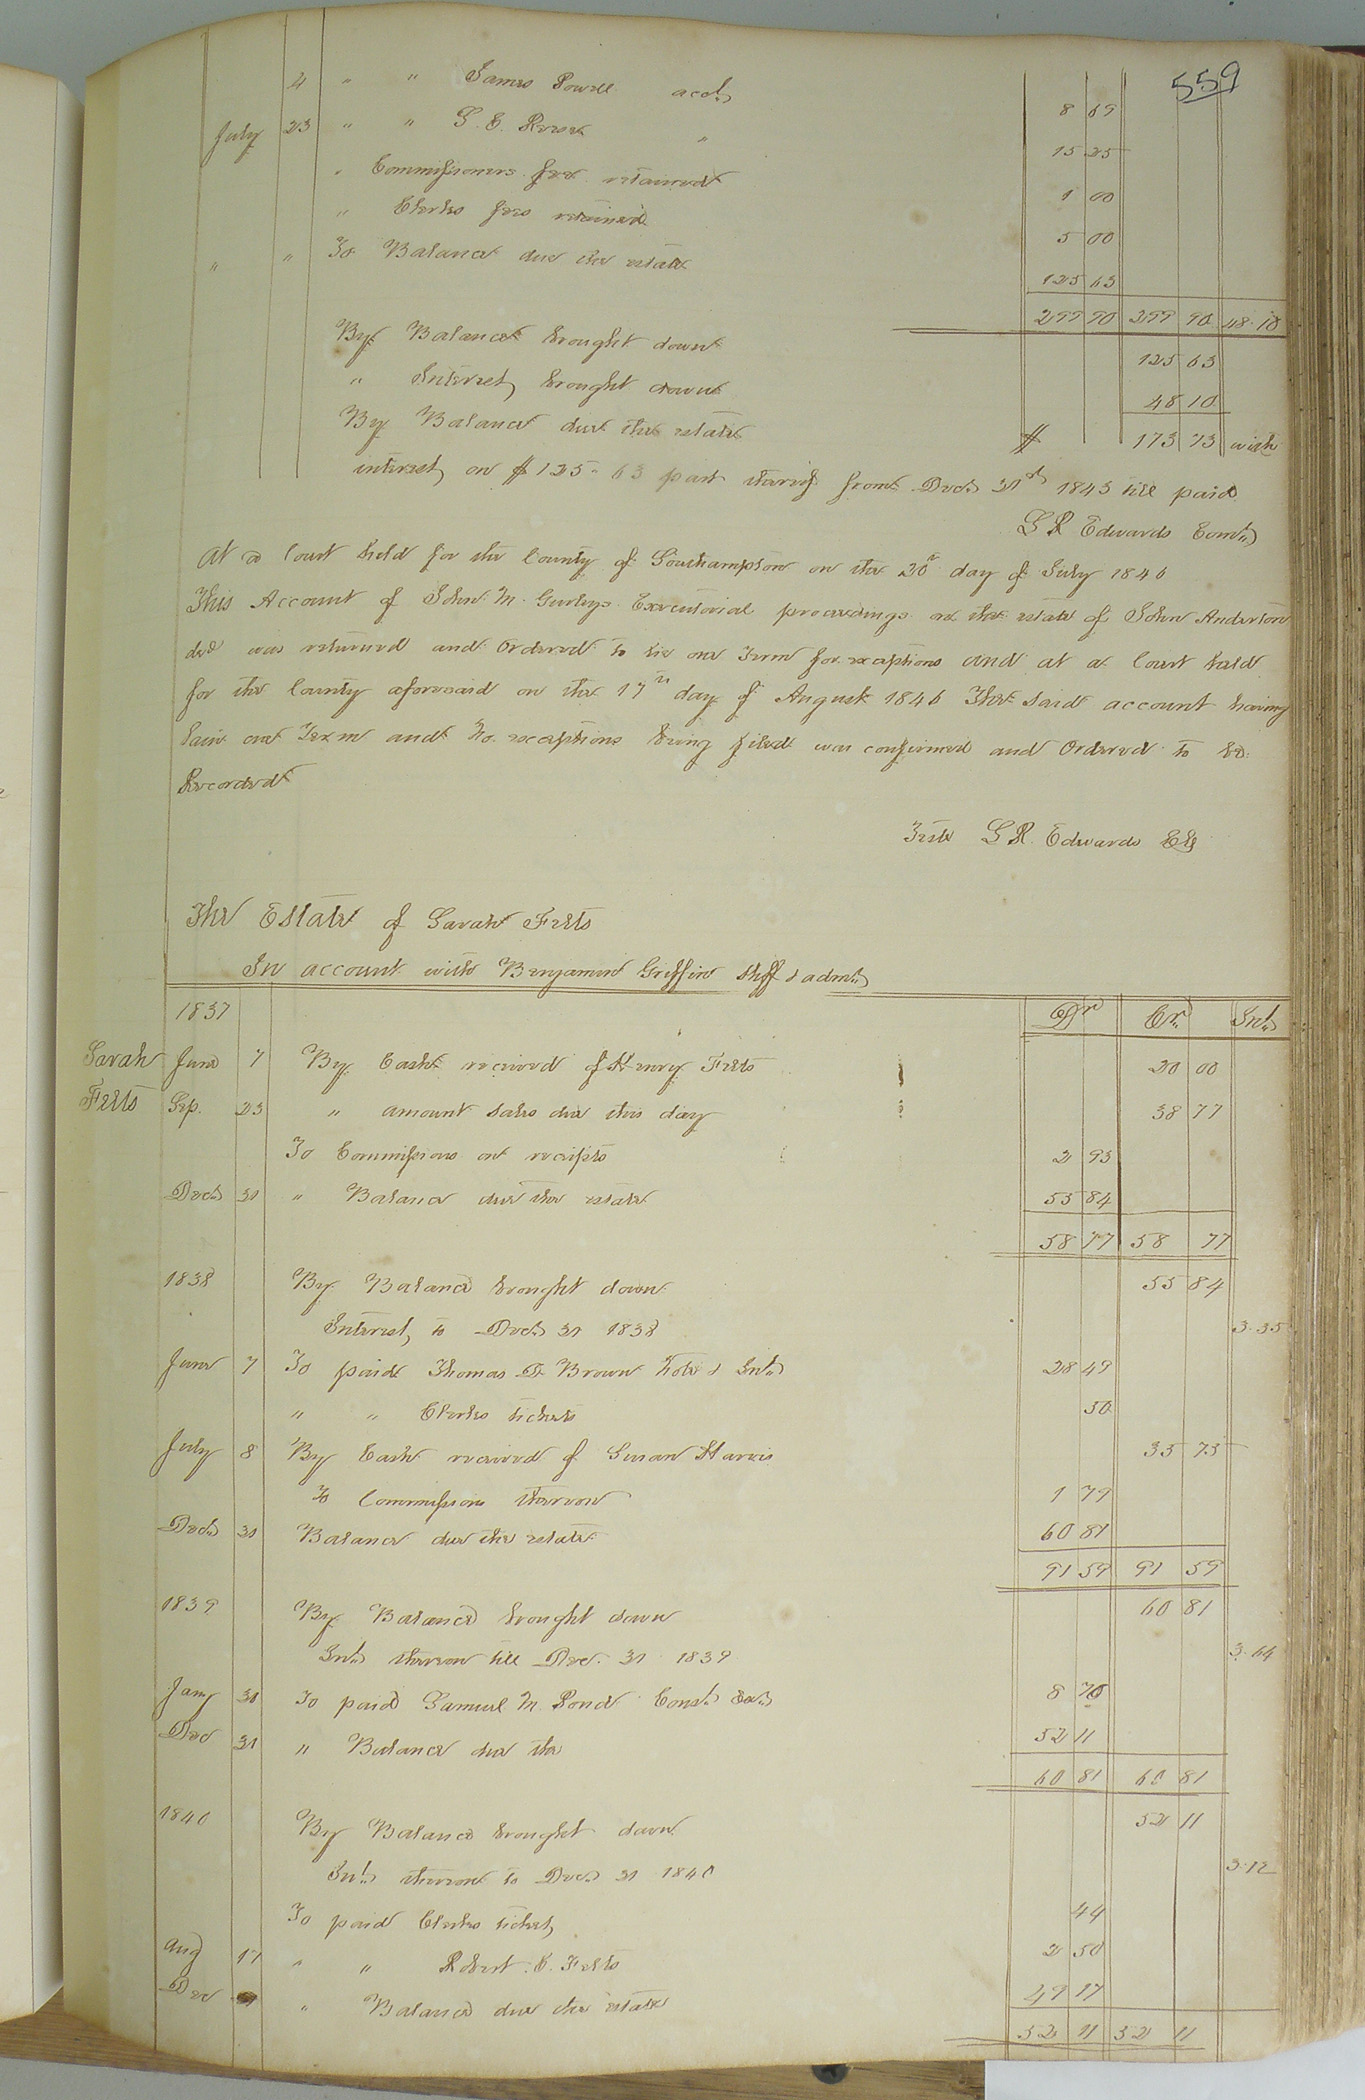 559
4 " " James Powell acct 8 69
July 23 " " S. E. 15 25
" Commissioners fee retained 1 00
" Clerks fees retained 5 00
" " To Balance due the estate 125 63
299 90 299 90 48.10
By Balance brought down 125 63
" Interest brought down 48 10
By Balance due the estate $ 173 73 with
interest on $125.63 part thereof from Dect 31st 1843 till paid
L R Edwards Comr
At a Court held for the County of Southampton on the 20th day of July 1846
This Account of John M. Gurleys Executorial proceedings on the estate of John Anderton
decd was returned and Ordered to lie one Term for exceptions and at a Court held
for the County aforesaid on the 17th day of August 1846 The said account having
lain one Term and no exceptions being filed was confirmed and Ordered to be
Recorded
Teste L R Edwards Clk
The Estate of Sarah Felts
In account with Benjamin Griffin Shff & admr
1837 Dr Cr. Int
Sarah Felts
June 7 By Cash received of Henry Felts 20 00
Sep. 23 " amount sales due this day 38 77
To Commissions on receipts 2 93
Dect 31 " Balance due the estate 55 84
58 77 58 77
1838 By Balance brought down 55 84
Interest to Dect 31 1838 3.35
June 7 To paid Thomas D Brown Note & Int 28 49
" " Clerks tickets 50
July 8 By Cash received of Susan Harris 35 75
To Commissions thereon 1 79
Dect 31 Balance due the estate 60 81
91 59 91 59
1839 By Balance brought down 60 81
Int thereon till Dec. 31 1839 3.64
Jany 30 To paid Samuel M. Pond Const 8 70
Dec 31 " Balance due the 52 11
60 81 60 81
1840 By Balance brought down 52 11
Int thereon to Dect 31 1840 3.12
To paid Clerks ticket 44
Aug 17 " " Robert. C. Felts 2 50
Dec " Balance due the estate 49 17
52 11 52 11